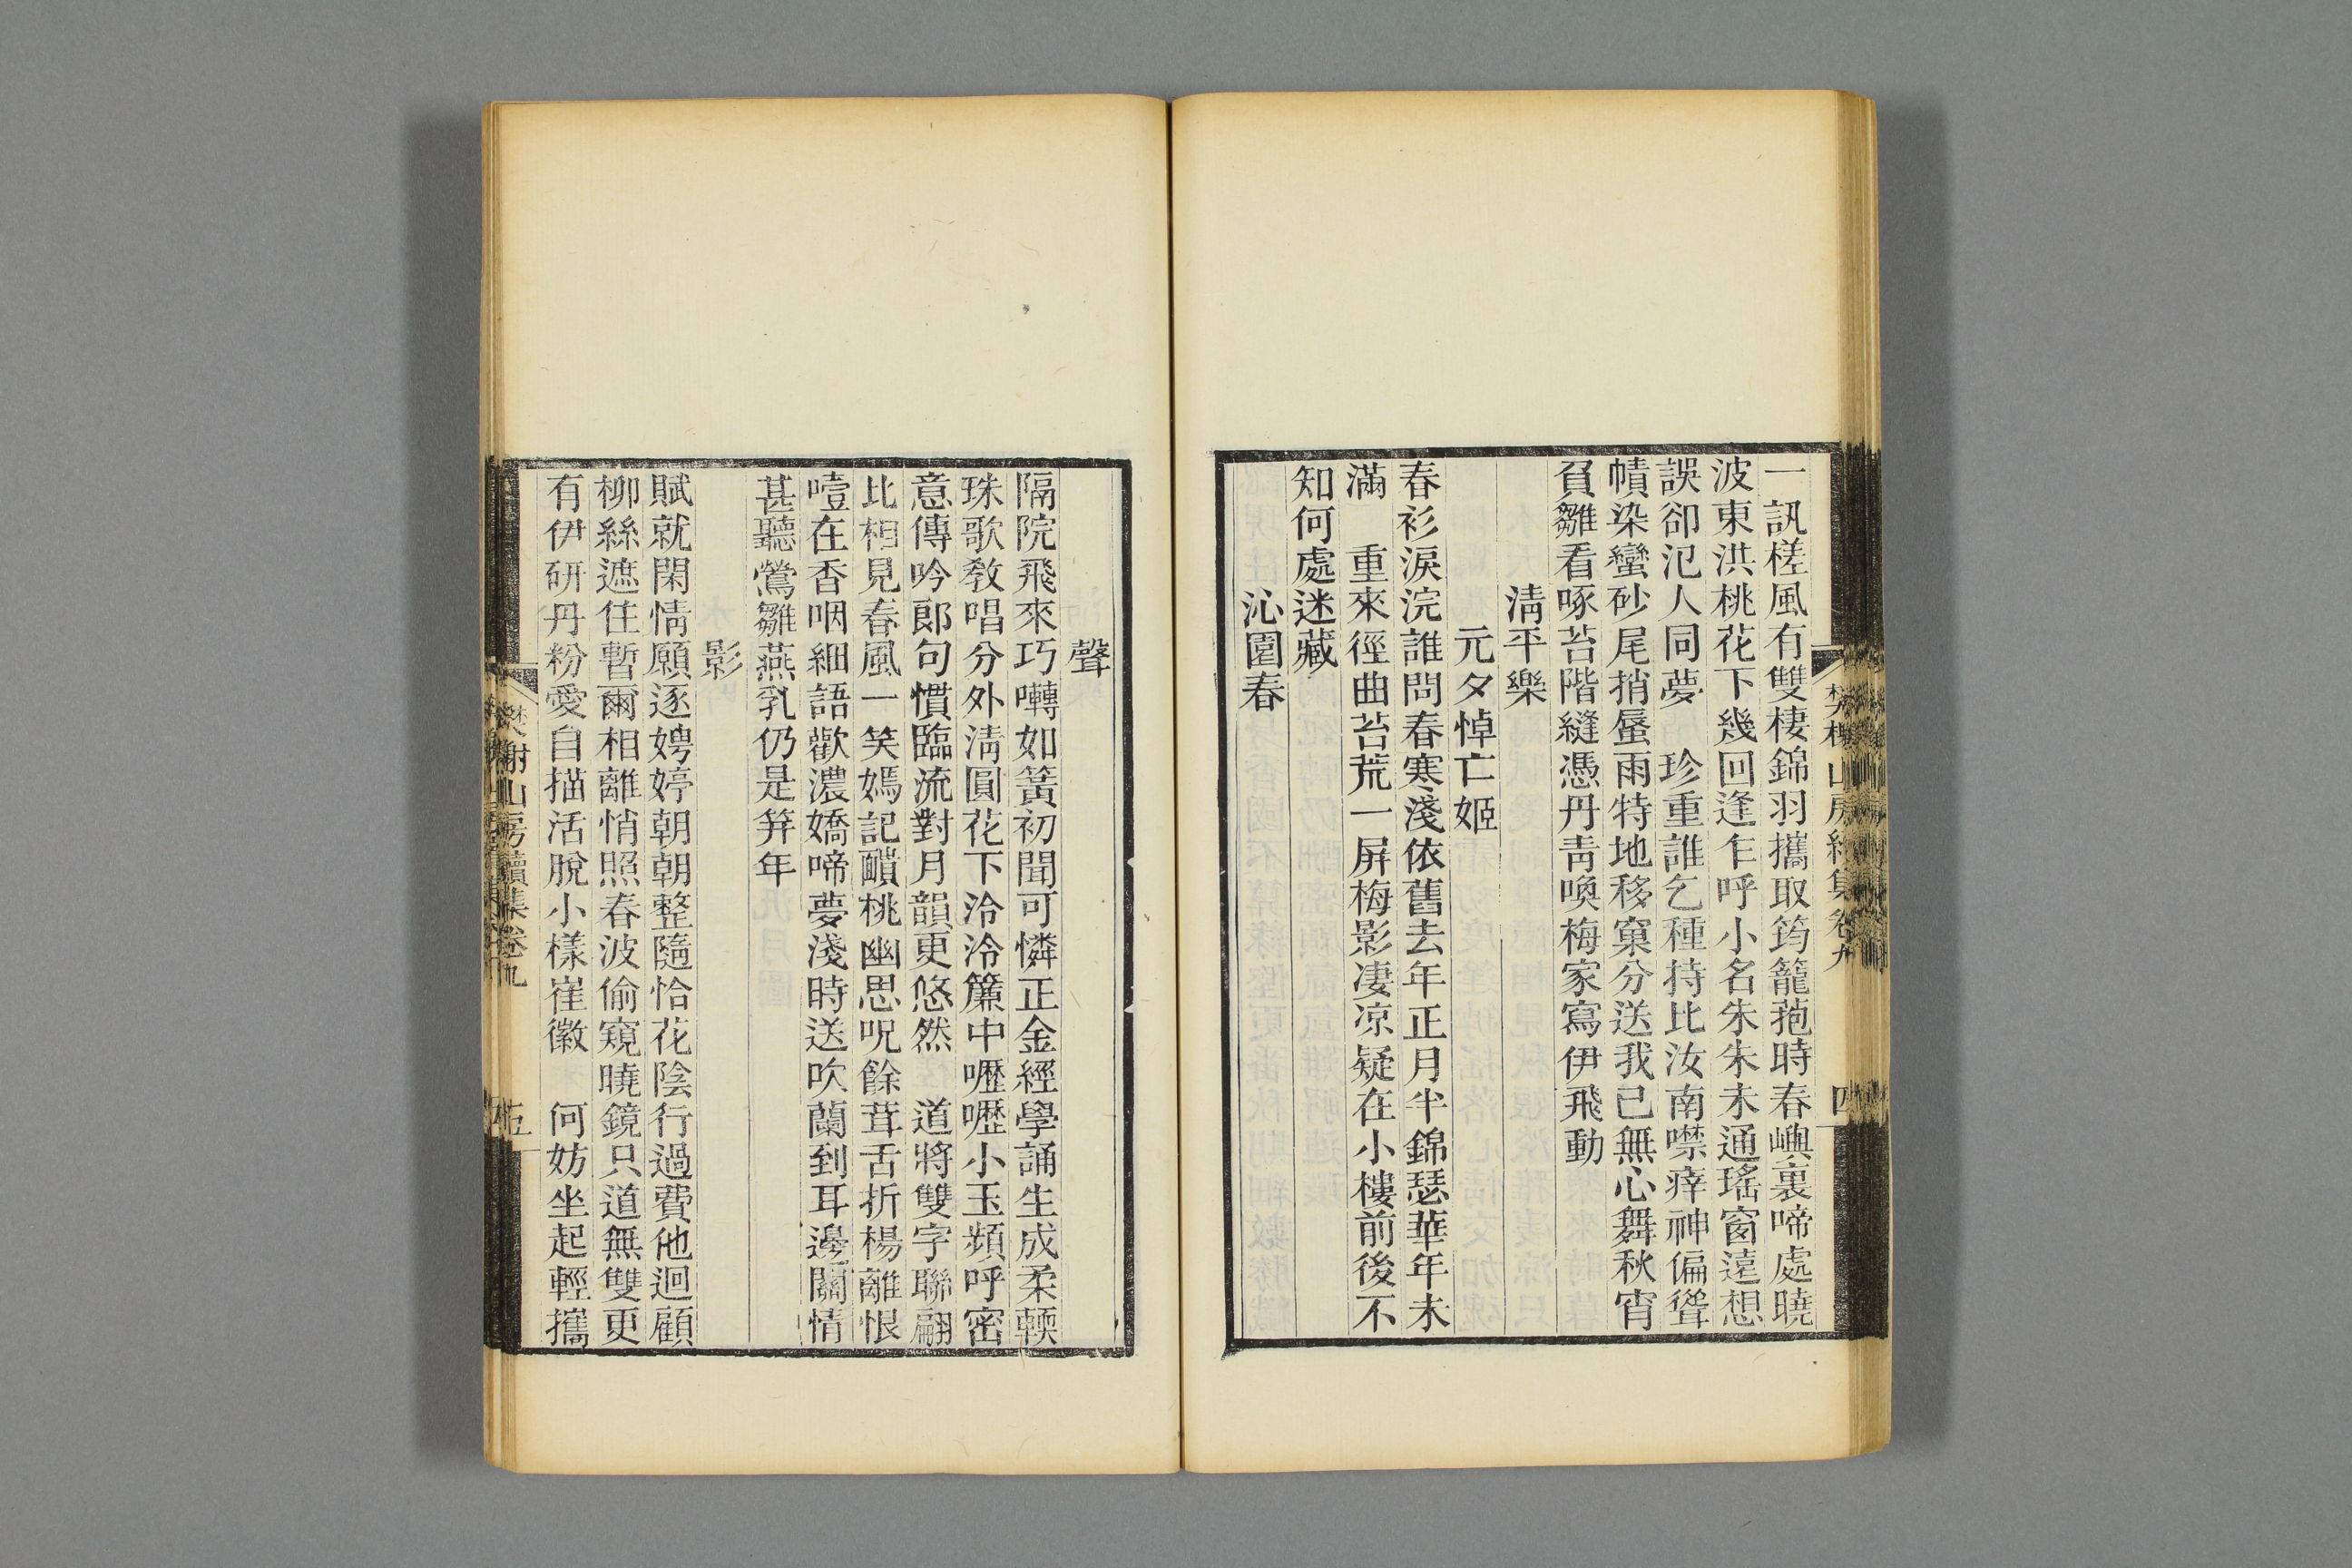 樊榭山房續集卷九
四
一訊槎風有雙棲錦羽攜取筠籠葂時春嶼裏啼處曉
波東洪桃花下幾回逢乍呼小名朱朱未通瑤窗遠想
誤卻氾人同夢 珍重誰乞種持比汝南噤痒神偏聳
幘染蠻砂尾捎蜃雨特地移窠分送我已無心舞秋宵
負雛看啄苔階縫憑丹青喚梅家寫伊飛動
清平樂
元夕悼亡姬
春衫淚浣誰問春寒淺依舊去年正月半錦瑟華年未
滿 重來徑曲苔荒一屏梅影凄凉疑在小樓前後不
知何處迷藏
沁園春
聲
隔院飛來巧囀如簧初聞可憐正金經學誦生成柔輭
珠歌教唱分外清圓花下泠泠簾中嚦嚦小玉頻呼密
意傳吟郞句慣臨流對月韻更悠然 道將雙字聯翩
比相見春風一笑嫣記靧桃幽思呪餘茸舌折楊離恨
噎在香咽細語歡濃嬌啼夢淺時送吹蘭到耳邊關情
甚聽鶯雛燕乳仍是筓年
影
賦就閑情願逐娉婷朝朝整隨恰花陰行過費他迴顧
柳絲遮住暫爾相離悄照春波偷窺曉鏡只道無雙更
有伊研丹粉愛自描活脫小樣崔徽 何妨坐起輕攜
樊榭山房續集卷九
五